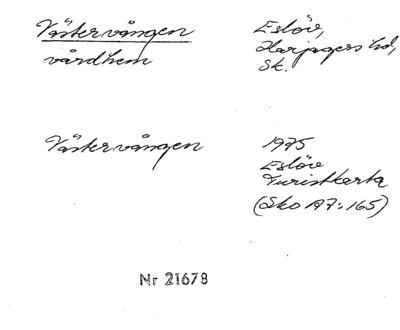 Västervången
vårdhem
Eslöv,
Harjagers hd,
Sk.
Västervången
1975
Eslöv
Turistkarta
(Sko A7:165)
Nr 21678